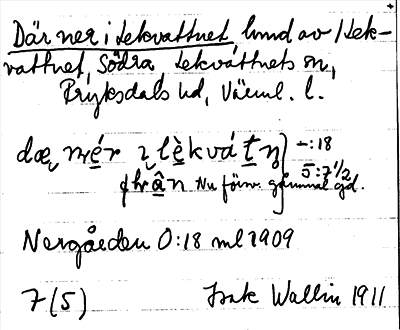 Där ner i Lekvattnet, hmd av / Lek-
vattnet, Södra, Lekvattnets sn,
Fryksdals hd, Värml. l.
dæ, nér ı lèkvátn̥ ] –:18
5:7 1/2
från Nu försv. gammal gd.
Nergården 0:18 ml 1909
7(5) Isak Wallin 1911